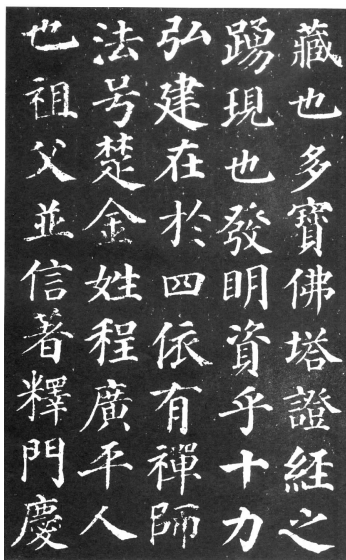 藏也多寶佛塔證經之
踴現也發明資乎十力
弘建在於四依有禪師
法号楚金姓程廣平人
也祖父並信著釋門慶